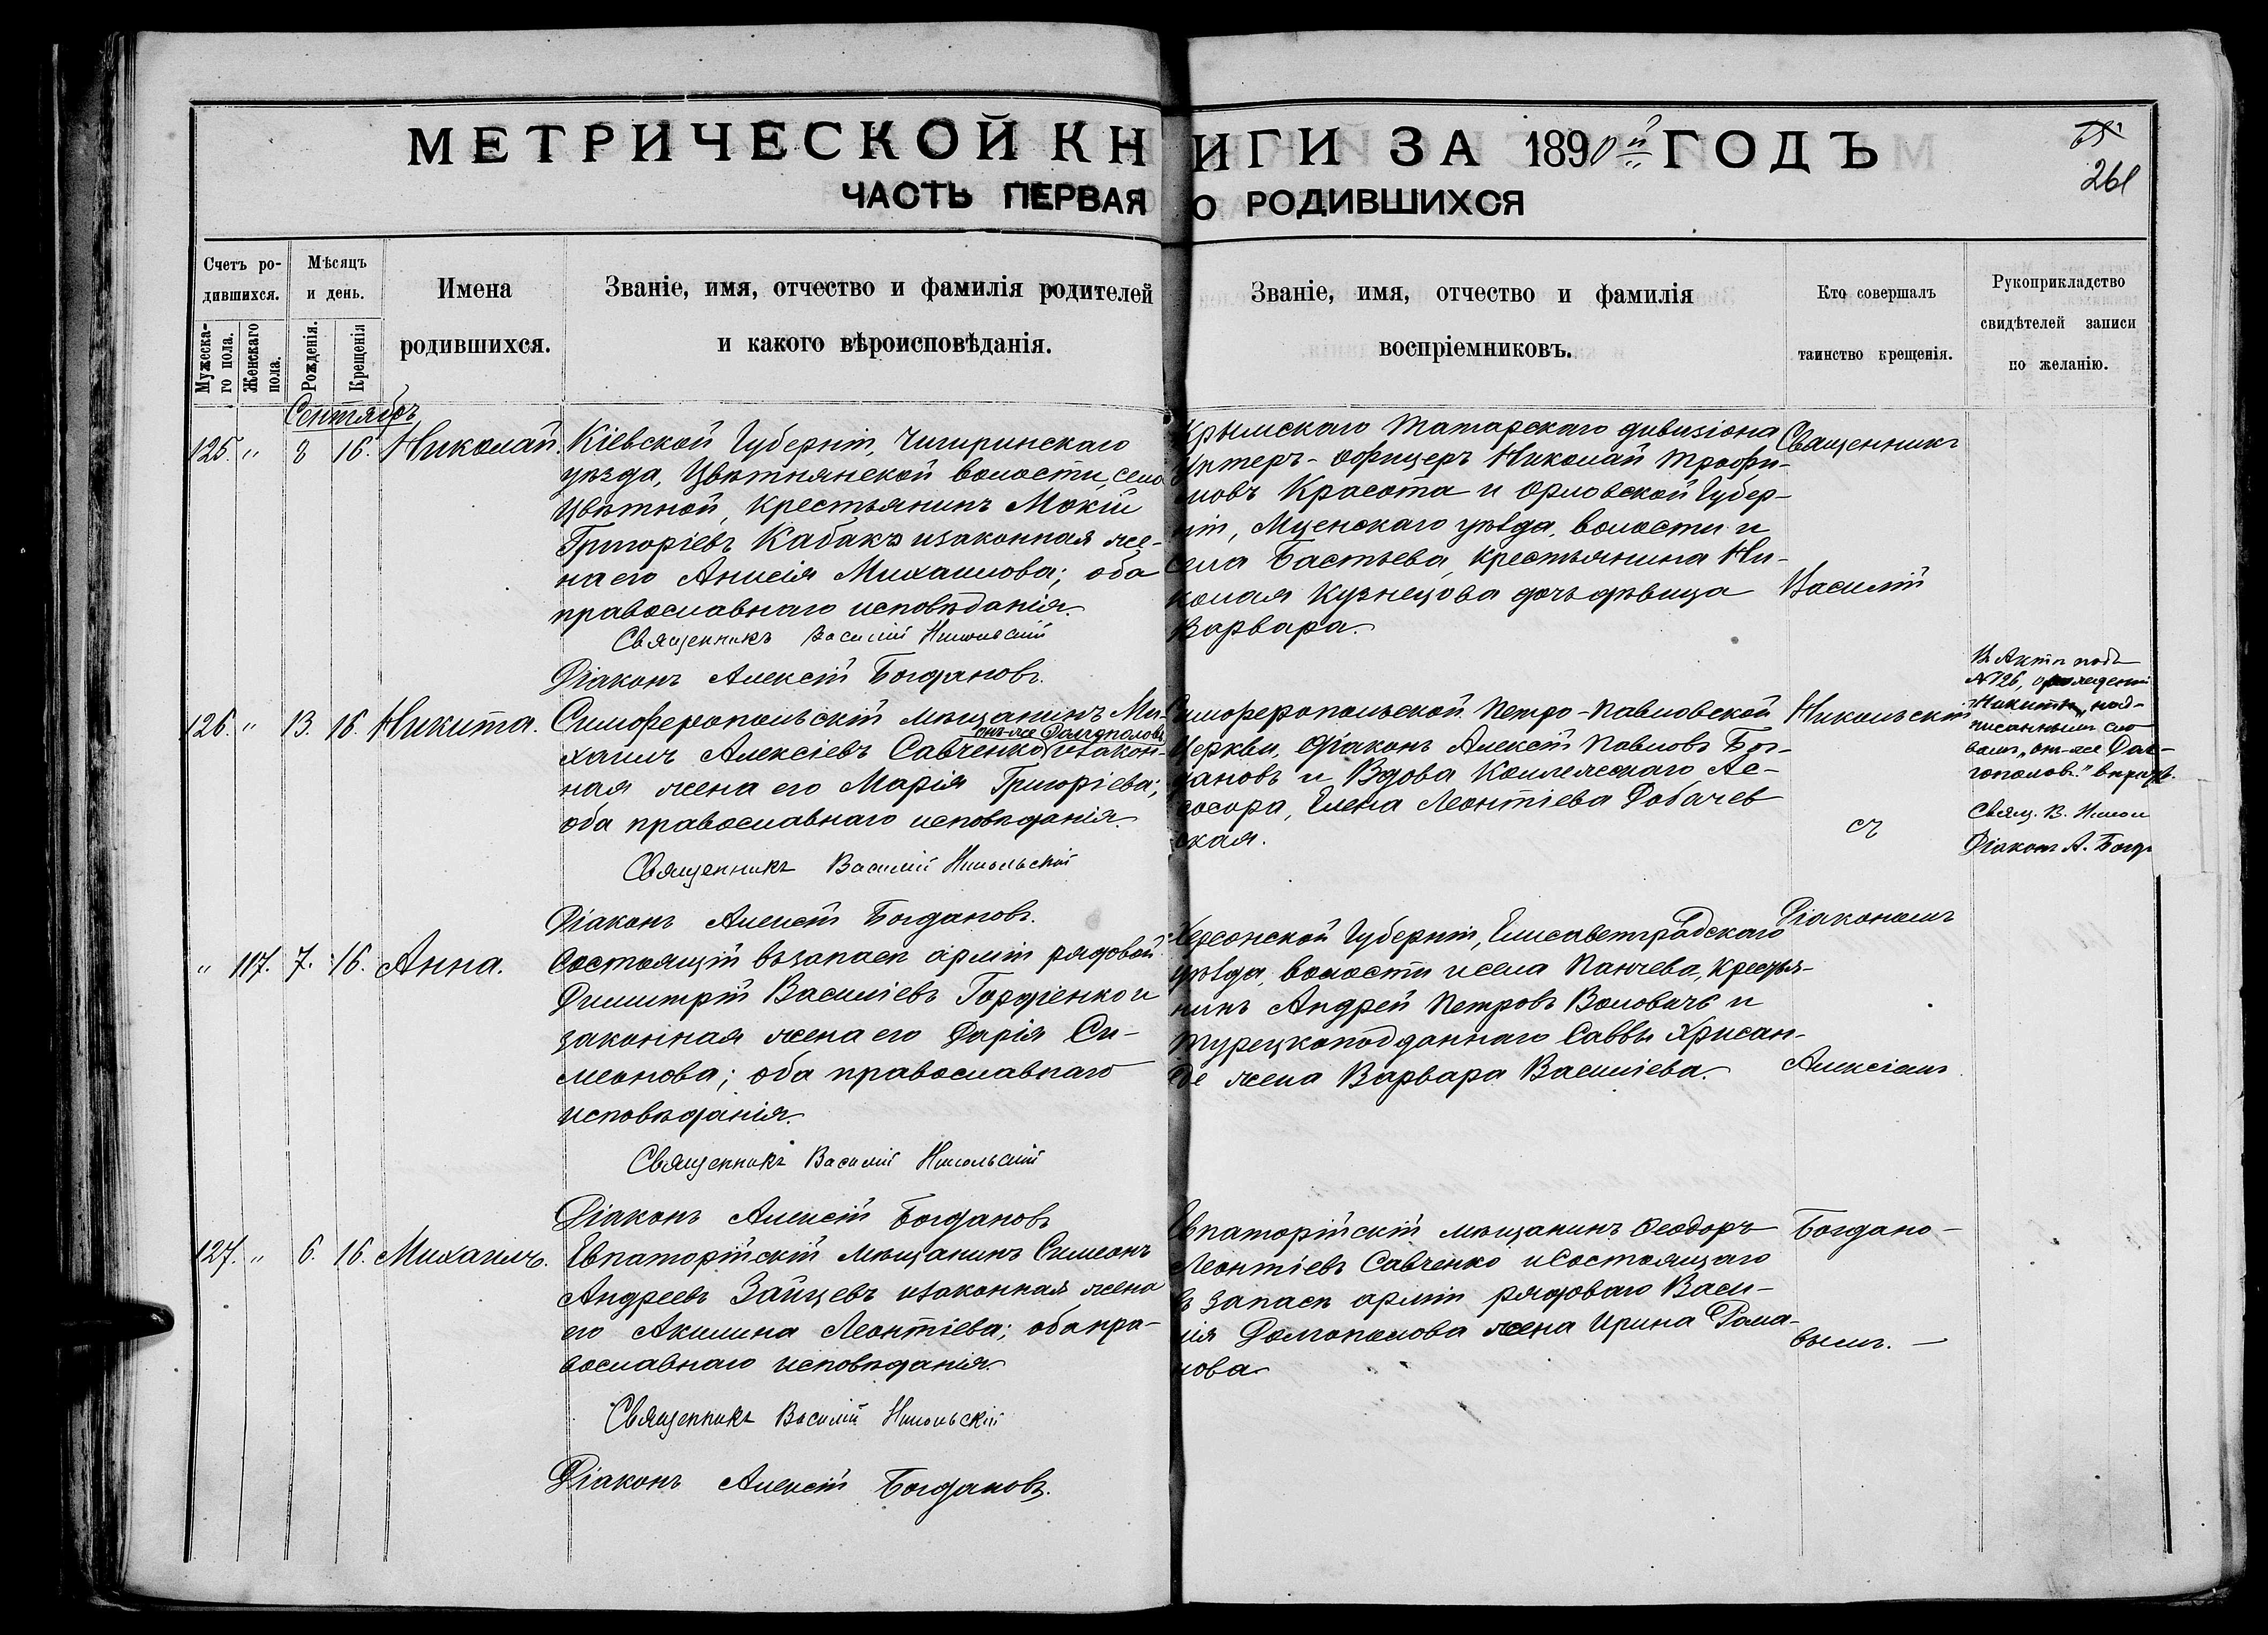 МЕТРИЧЕСКОЙ КНИГИ ЗА 1890й ГОДЪ
65
261
ЧАСТЬ ПЕРВАЯ О РОДИВШИХСЯ
Счетъ родившихся.
Мужескаго пола.
Женскаго пола.
Мѣсяцъ и день.
Рожденія.
Крещенія
Имена родившихся.
Званіе, имя, отчество и фамилія родителей
и какого вѣроисповѣданія.
Званіе, имя, отчество и фамилія
воспріемниковъ.
Кто совершалъ
таинство крещенія.
Рукоприкладство
свидѣтелей записи
по желанію.
Сентябрь
125. " 8 16. Николай.
Кіевской Губерніи, Чигиринскаго
уѣзда, Цвѣтнянской волости, села
Цвѣтной, крестьянинъ Мокій
Григоріевъ Кабакъ и законная же-
на его Анисія Михаилова; оба
православнаго исповѣданія.
Священникъ Василій Никольскій
Діаконъ Алексій Богдановъ.
Крымскаго Татарскаго дивизіона
Унтеръ-офицеръ Николай Трофи-
мовъ Красота и Орловской Губер-
ніи, Мценскаго уѣзда, волости и
села Бастыева, крестьянина Ни-
колая Кузнецова дочь дѣвица
Варвара.
Священникъ
Василій
126. " 13. 16. Никита.
Симферопольскій мѣщанинъ Ми-
онъ-же Долгополовъ
хаилъ Алексіевъ Савченко и закон-
ная жена его Марія Григоріева;
оба православнаго исповѣданія.
Священникъ Василій Никольскій
Діаконъ Алексій Богдановъ.
Симферопольской Петро-Павловской
Церкви, Діаконъ Алексій Павловъ Бог-
дановъ и Вдова Коллежскаго Ас-
сосора, Елена Леонтіева Добачев
ская.
Никольскій
съ
Въ Актѣ подъ
№126, о рожденіи
Никиты, над-
писаннымъ сло
вамъ "онъ-же Дол-
гополовъ"
Свящ. В. Никол
Діаконъ А. Богд
" 117. 7. 16. Анна.
Состоящій въ запасѣ арміи рядовой
Димитрій Васильевъ Гордіенко и
законная жена его Дарія Си-
меонова; оба православнаго
исповѣданія.
Священникъ Василій Никольскій
Діаконъ Алексій Богдановъ
Херсонской Губерніи, Елисаветградскаго
уѣзда, волости и села Панчева, крестья-
нинъ Андрей Петровъ Воловичъ и
турецкоподданнаго Саввы Хрисан-
де жена Варвара Васильева.
Діакономъ
Алексіемъ
127. " 6. 16. Михаилъ.
Евпаторійскій мѣщанинъ Симеонъ
Андреевъ Зайцевъ и законная жена
его Акилина Леонтіева; оба пра-
вославнаго исповѣданія.
Священникъ Василій Никольскій
Діаконъ Алексій Богдановъ.
Евпаторійскій мѣщанинъ Ѳеодоръ
Леонтіевъ Савченко и состоящаго
въ запасѣ арміи рядоваго Васи-
лія Долгополова жена Ирина Рома-
нова
Богдано-
вымъ.